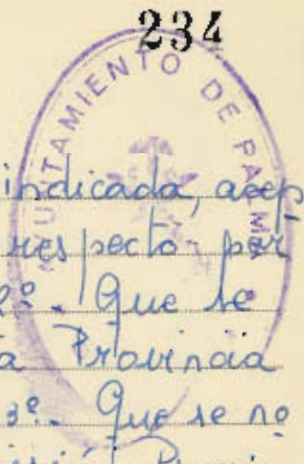 234
AYUNTAMIENTO DE PALMA
indicada, acep
respecto por
2º. Que se
Provincia
3º. Que se no